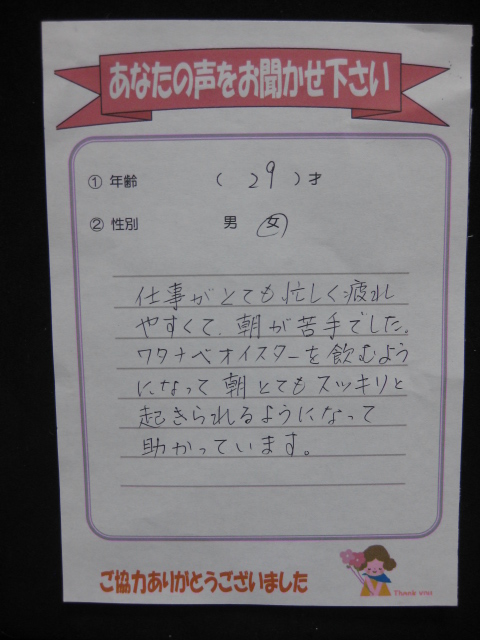 あなたの声をお聞かせ下さい
① 年齢 ( 29 ) 才
② 性別 男 女
仕事がとても忙しく疲れ
やすくて、朝が苦手でした。
ワタナベオイスターを飲むよう
になって朝とてもスッキリと
起きられるようになって
助かっています。
ご協力ありがとうございました
Thank you